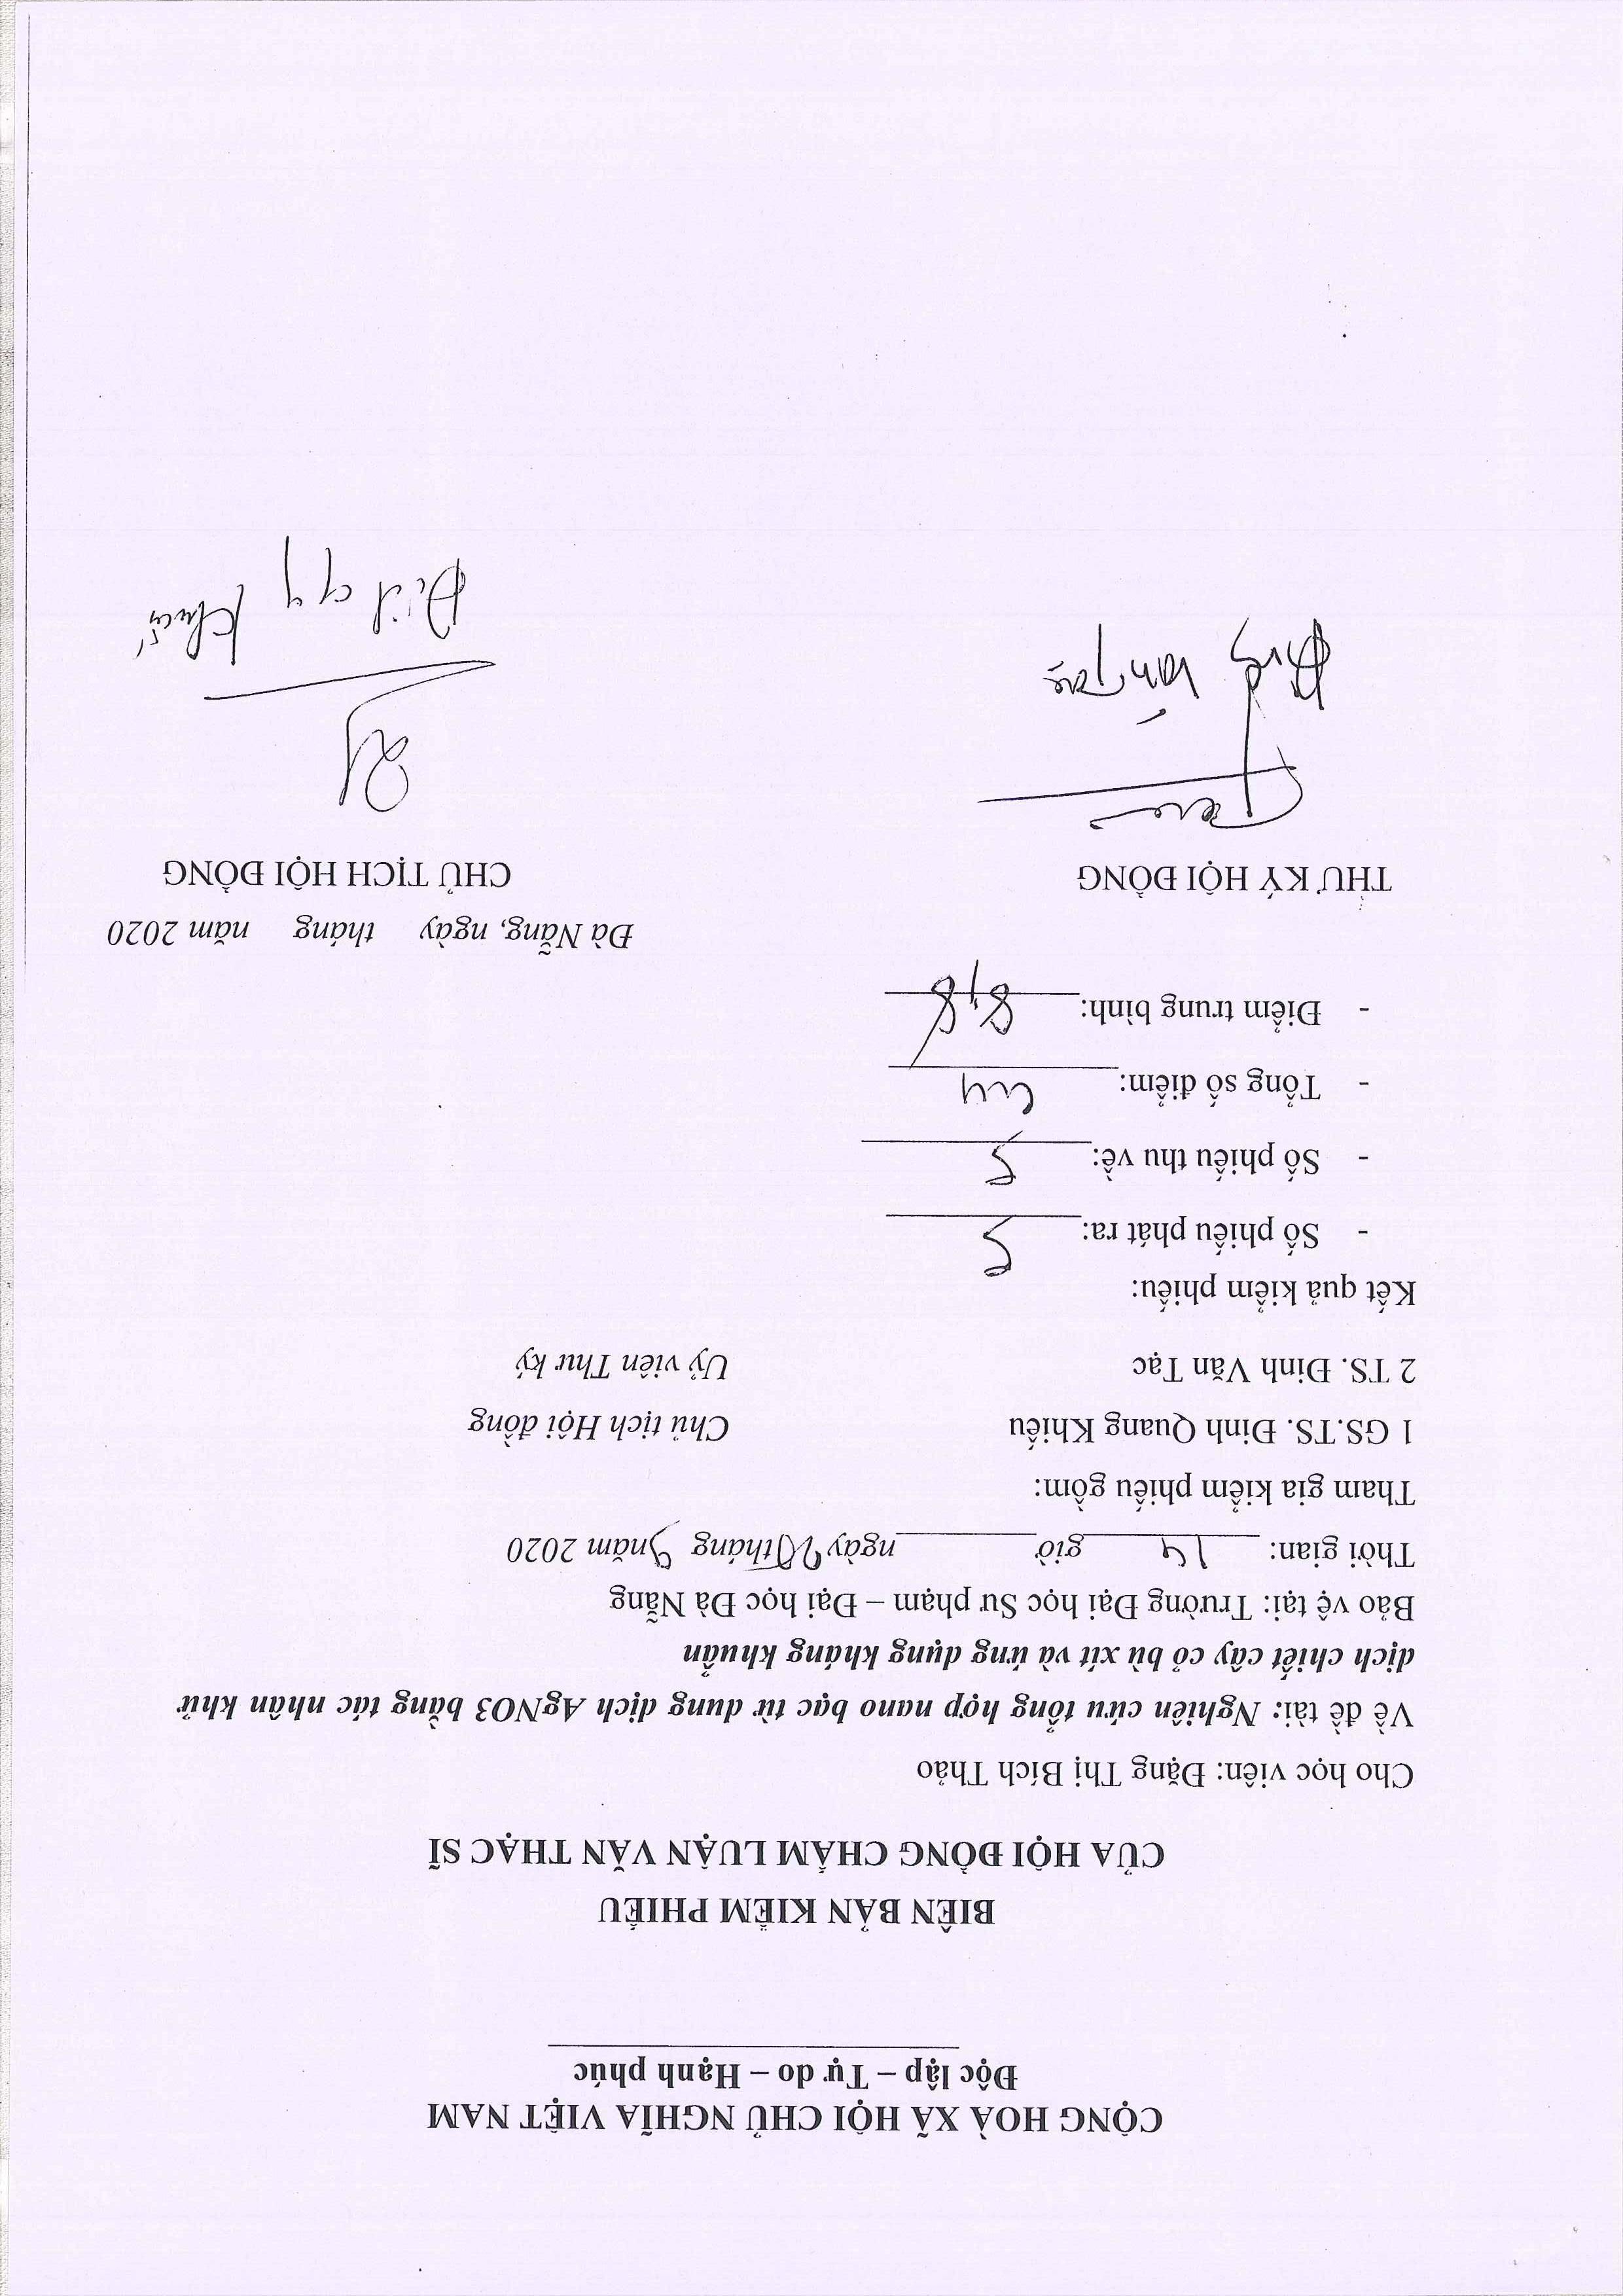 CỘNG HOÀ XÃ HỘI CHỦ NGHĨA VIỆT NAM
Độc lập – Tự do – Hạnh phúc
BIÊN BẢN KIỂM PHIẾU
CỦA HỘI ĐỒNG CHẤM LUẬN VĂN THẠC SĨ
Cho học viên: Đặng Thị Bích Thảo
Về đề tài: Nghiên cứu tổng hợp nano bạc từ dung dịch AgNO3 bằng tác nhân khử
dịch chiết cây cỏ bù xít và ứng dụng kháng khuẩn
Bảo vệ tại: Trường Đại học Sư phạm – Đại học Đà Nẵng
Thời gian: 14 giờ ngày tháng 9 năm 2020
Tham gia kiểm phiếu gồm:
1 GS.TS. Đinh Quang Khiếu Chủ tịch Hội đồng
2 TS. Đinh Văn Tạc Uỷ viên Thư ký
Kết quả kiểm phiếu:
- Số phiếu phát ra: 5
- Số phiếu thu về: 5
- Tổng số điểm: 44
- Điểm trung bình: 8,8
Đà Nẵng, ngày tháng năm 2020
THƯ KÝ HỘI ĐỒNG CHỦ TỊCH HỘI ĐỒNG
Đinh Văn Tạc